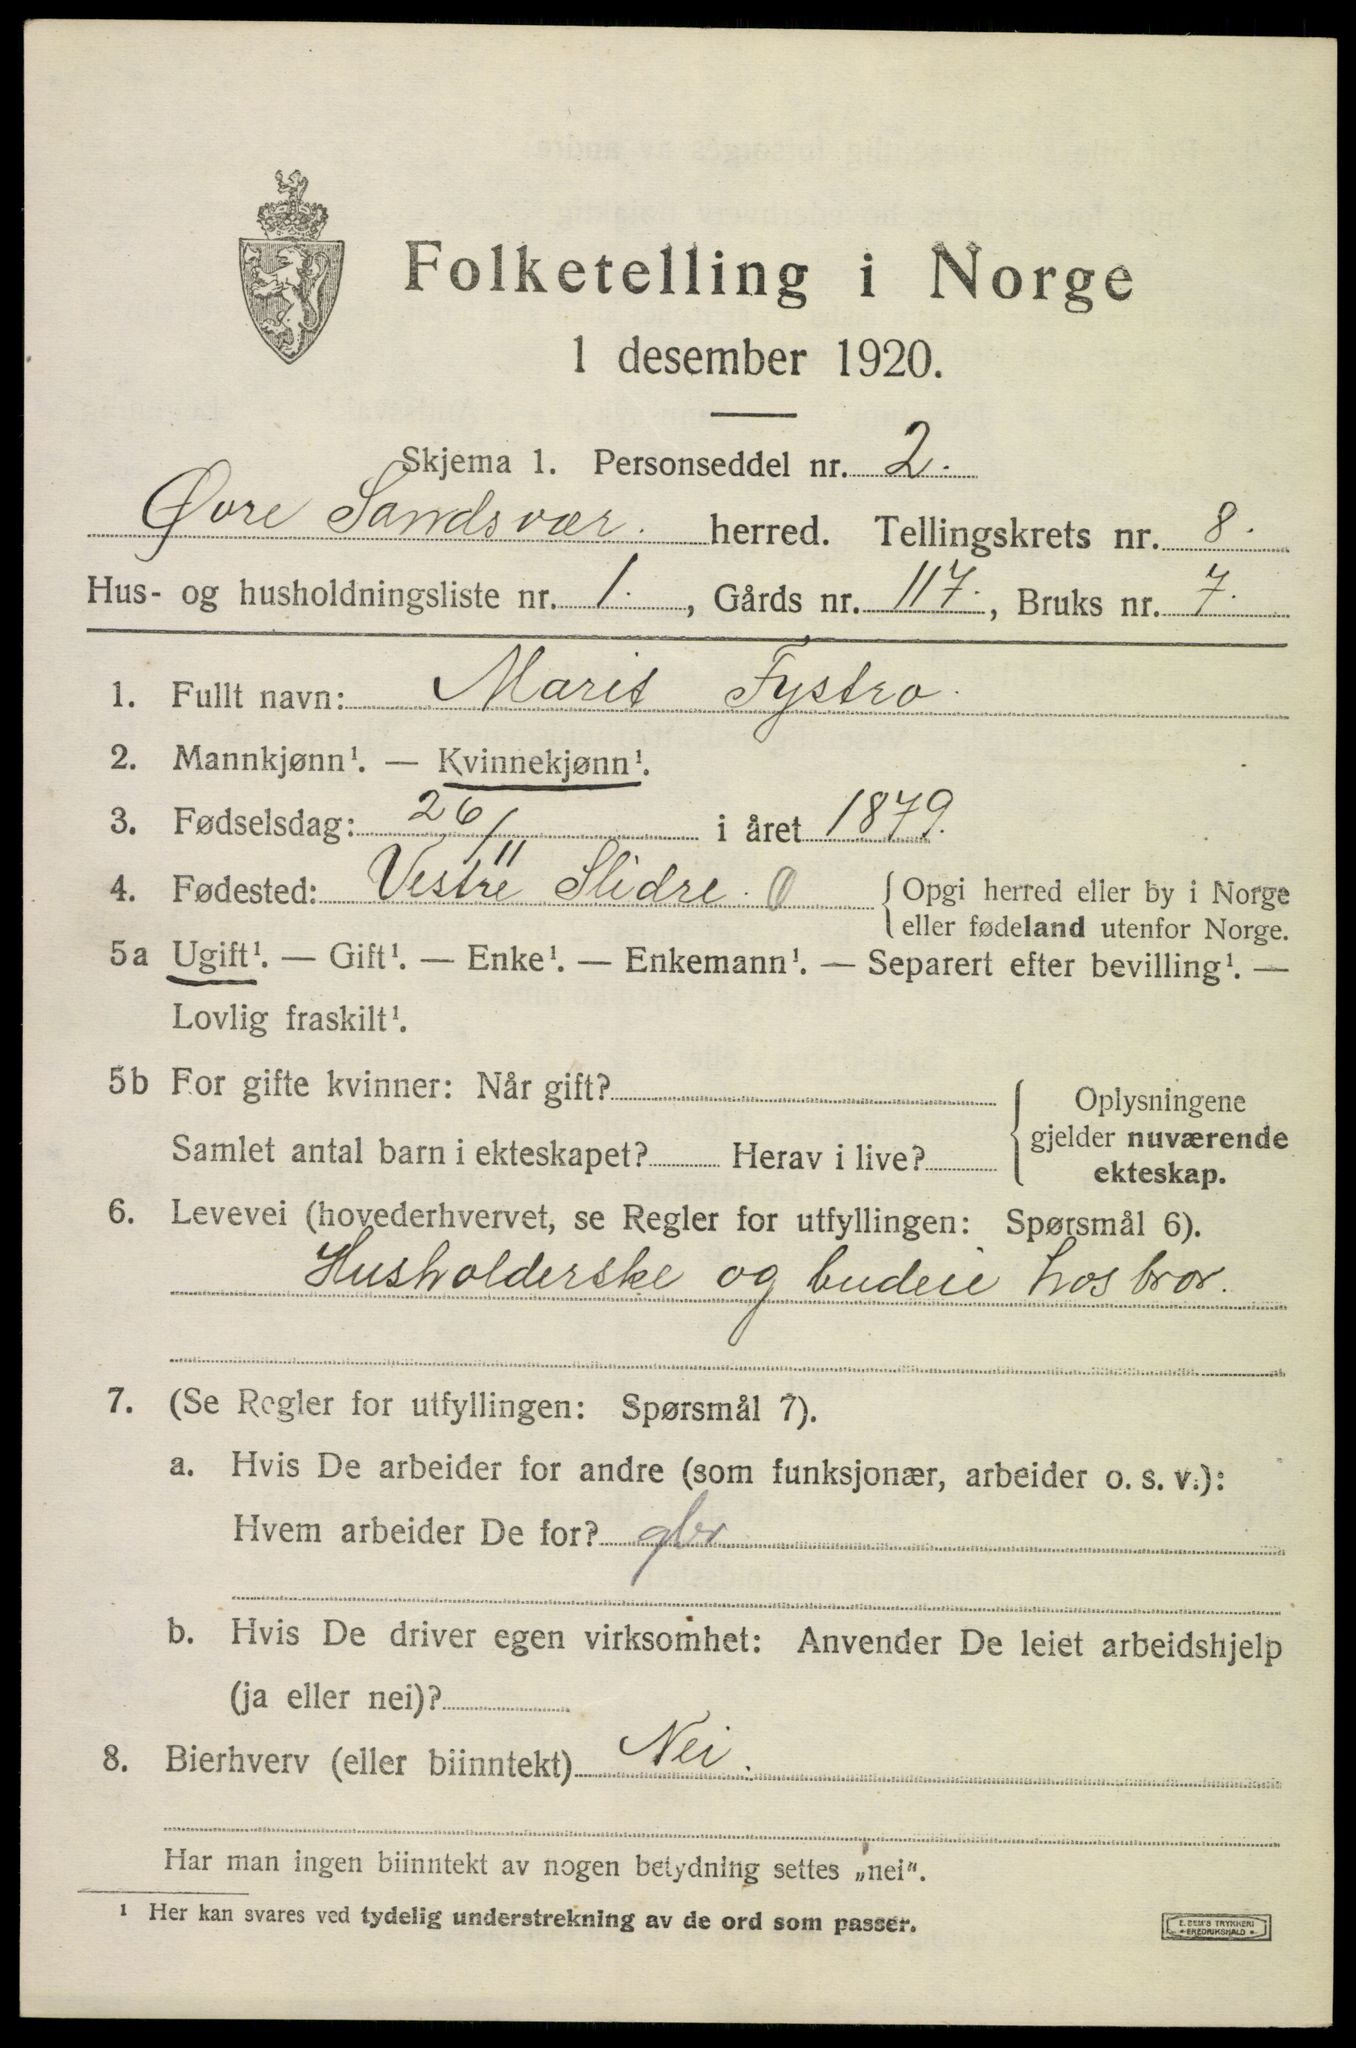 Folketelling i Norge
1 desember 1920.
Skjema 1. Personseddel nr. 2.
Øvre Sandsvær. herred. Tellingskrets nr. 8.
Hus- og husholdningsliste nr. 1., Gårds nr. 117., Bruks nr. 7.
1. Fullt navn: Marit Fystro.
2. Mannkjønn¹. — Kvinnekjønn¹.
3. Fødselsdag: 26/11 i året 1879.
4. Fødested: Vestre Slidre. 0 { Opgi herred eller by i Norge
eller fødeland utenfor Norge.
5a Ugift¹. — Gift¹. — Enke¹. — Enkemann¹. — Separert efter bevilling¹. —
Lovlig fraskilt¹.
5b For gifte kvinner: Når gift?
Samlet antal barn i ekteskapet? Herav i live?
Oplysningene
gjelder nuværende
ekteskap.
6. Levevei (hovederhvervet, se Regler for utfyllingen: Spørsmål 6).
Husholderske og budeie hos bror.
7. (Se Regler for utfyllingen: Spørsmål 7).
a. Hvis De arbeider for andre (som funksjonær, arbeider o. s. v.):
Hvem arbeider De for? gbr
b. Hvis De driver egen virksomhet: Anvender De leiet arbeidshjelp
(ja eller nei)?
8. Bierhverv (eller biinntekt) Nei.
Har man ingen biinntekt av nogen betydning settes „nei".
¹ Her kan svares ved tydelig understrekning av de ord som passer.
E. SEM'S TRYKKERI
FREDRIKSHALD